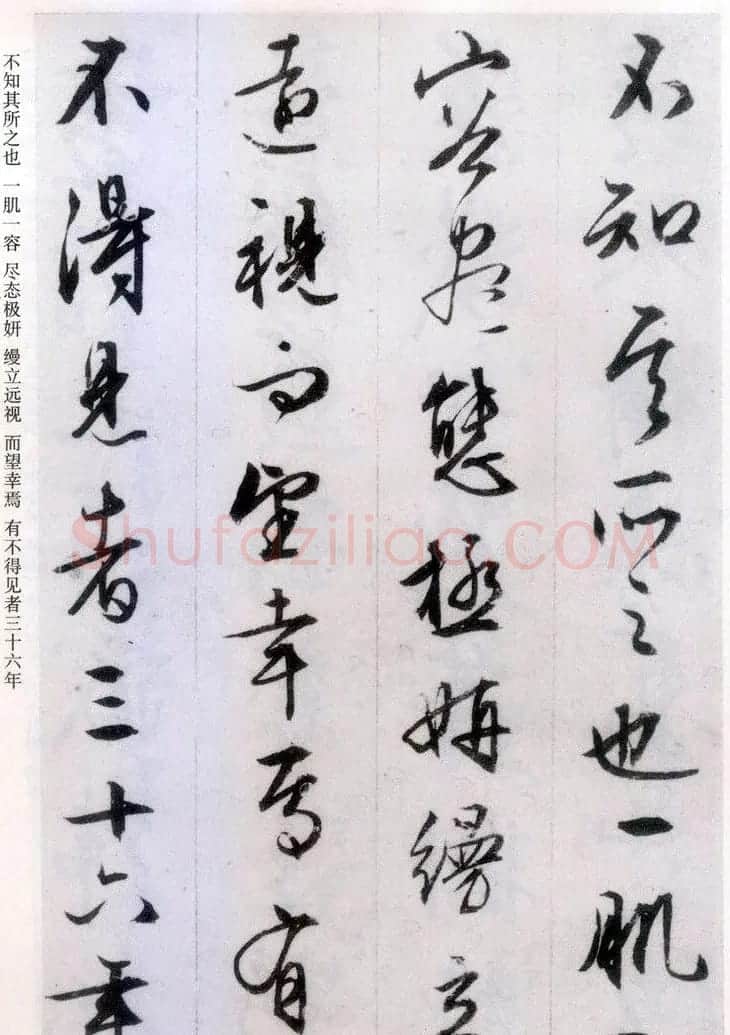 不知其所之也一肌一
容盡態極妍縵立
遠視而望幸焉有
不得見者三十六年
不知其所之也 一肌一容 尽态极妍 缦立远视 而望幸焉 有不得见者三十六年
Shufaziliao.COM